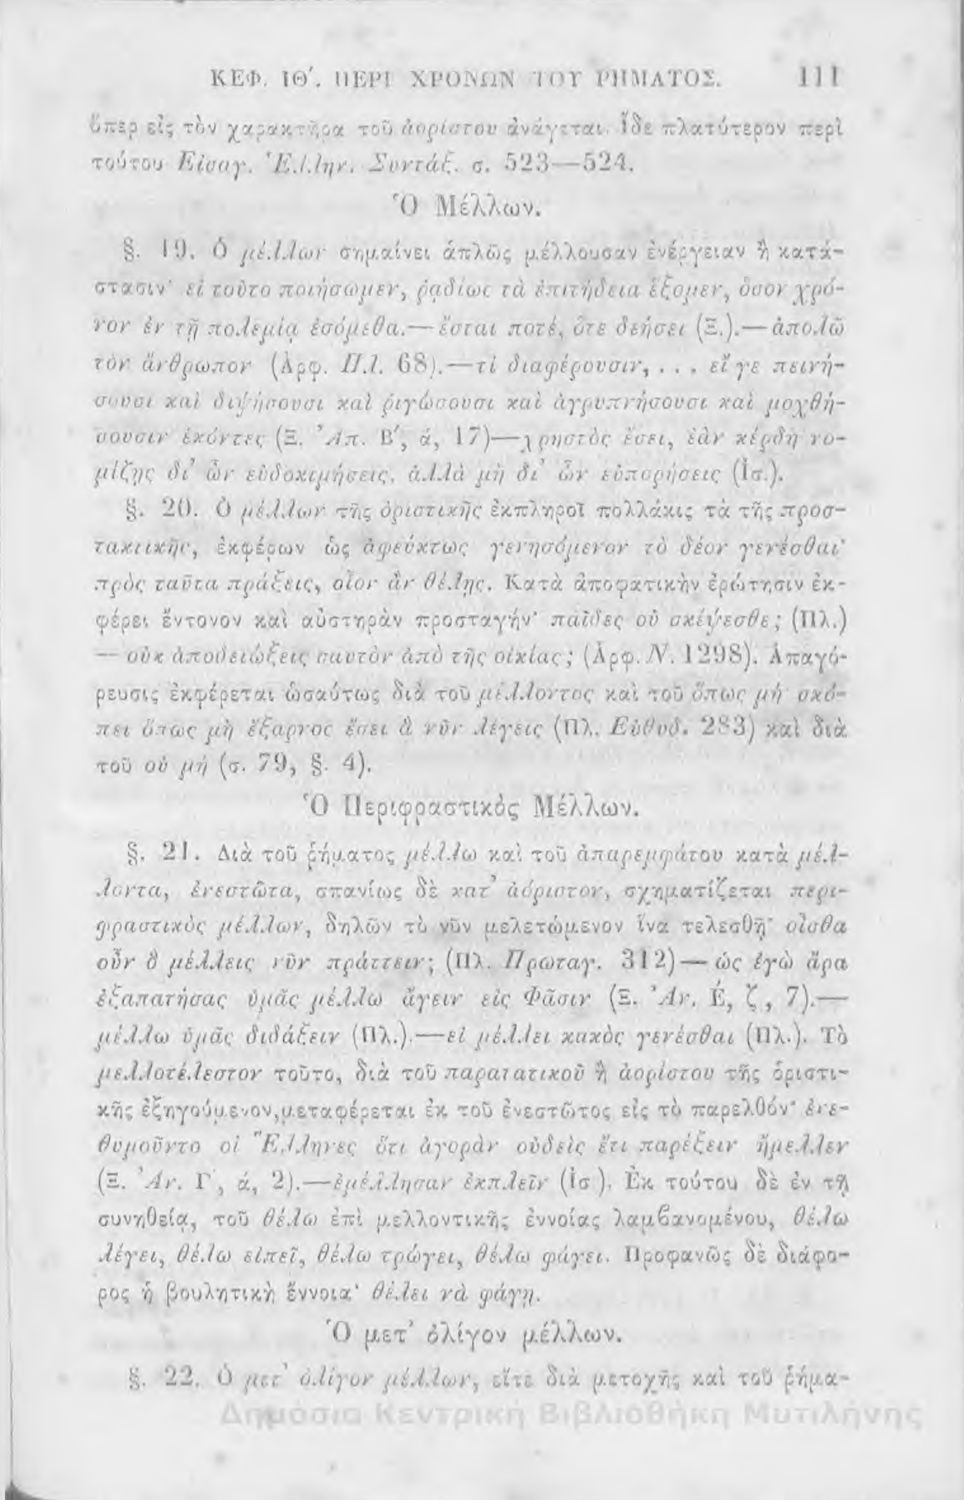 ΚΕΦ. ΙΘʹ. ΠΕΡΙ ΧΡΟΝΩΝ ΤΟΥ ΡΗΜΑΤΟΣ. 111
ὅπερ εἰς τὸν χαρακτῆρα τοῦ ἀορίστου ἀνάγεται. Ἴδε πλατύτερον περὶ
τούτου Εἰσαγ. Ἑλλην. Συντάξ. σ. 523—524.
Ὁ Μέλλων.
§. 19. Ὁ μέλλων σημαίνει ἁπλῶς μέλλουσαν ἐνέργειαν ἢ κατά-
στασιν· εἰ τοῦτο ποιήσωμεν, ῥᾳδίως τὰ ἐπιτήδεια ἕξομεν, ὅσον χρό-
νον ἐν τῇ πολεμίᾳ ἐσόμεθα.—ἔσται ποτέ, ὅτε δεήσει (Ξ.).—ἀπολῶ
τὸν ἄνθρωπον (Ἀρφ. Πλ. 68).—τί διαφέρουσιν, . . . εἴ γε πεινή-
σουσι καὶ διψήσουσι καὶ ῥιγώσουσι καὶ ἀγρυπνήσουσι καὶ μοχθή-
σουσιν ἑκόντες (Ξ. Ἀπ. Βʹ, ά, 17)—χρηστὸς ἔσει, ἐὰν κέρδη νο-
μίζῃς δι᾽ ὧν εὐδοκιμήσεις, ἀλλὰ μὴ δι᾽ ὧν εὐπορήσεις (Ἰσ.).
§. 20. Ὁ μέλλων τῆς ὁριστικῆς ἐκπληροῖ πολλάκις τὰ τῆς προσ-
τακτικῆς, ἐκφέρων ὡς ἀφεύκτως γενησόμενον τὸ δέον γενέσθαι·
πρὸς ταῦτα πράξεις, οἷον ἂν θέλῃς. Κατὰ ἀποφατικὴν ἐρώτησιν ἐκ-
φέρει ἔντονον καὶ αὐστηρὰν προσταγήν· παῖδες οὐ σκέψεσθε; (Πλ.)
— οὐκ ἀποδειώξεις σαυτὸν ἀπὸ τῆς οἰκίας; (Ἀρφ. Ν. 1298). Ἀπαγό-
ρευσις ἐκφέρεται ὡσαύτως διὰ τοῦ μέλλοντος καὶ τοῦ ὅπως μή· σκό-
πει ὅπως μὴ ἔξαρνος ἔσει ἃ νῦν λέγεις (Πλ. Εὐθυδ. 283) καὶ διὰ
τοῦ οὐ μή (σ. 79, §. 4).
Ὁ Περιφραστικὸς Μέλλων.
§. 21. Διὰ τοῦ ῥήματος μέλλω καὶ τοῦ ἀπαρεμφάτου κατὰ μέλ-
λοντα, ἐνεστῶτα, σπανίως δὲ κατ᾽ ἀόριστον, σχηματίζεται περι-
φραστικὸς μέλλων, δηλῶν τὸ νῦν μελετώμενον ἵνα τελεσθῇ· οἶσθα
οὖν ὃ μέλλεις νῦν πράττειν; (Πλ. Πρωταγ. 312)— ὡς ἐγὼ ἄρα
ἐξαπατήσας ὑμᾶς μέλλω ἄγειν εἰς Φᾶσιν (Ξ. Ἀν. Έ, ζ, 7).—
μέλλω ὑμᾶς διδάξειν (Πλ.).—εἰ μέλλει κακὸς γενέσθαι (Πλ.). Τὸ
μελλοτέλεστον τοῦτο, διὰ τοῦ παρατατικοῦ ἢ ἀορίστου τῆς ὁριστι-
κῆς ἐξηγούμενον, μεταφέρεται ἐκ τοῦ ἐνεστῶτος εἰς τὸ παρελθόν· ἐνε-
θυμοῦντο οἱ Ἕλληνες ὅτι ἀγορὰν οὐδεὶς ἔτι παρέξειν ἤμελλεν
(Ξ. Ἀν. Γʹ, ά, 2).—ἐμέλλησαν ἐκπλεῖν (Ἰσ.). Ἐκ τούτου δὲ ἐν τῇ
συνηθείᾳ, τοῦ θέλω ἐπὶ μελλοντικῆς ἐννοίας λαμβανομένου, θέλω
λέγει, θέλω εἰπεῖ, θέλω τρώγει, θέλω φάγει. Προφανῶς δὲ διάφο-
ρος ἡ βουλητικὴ ἔννοια· θέλει νὰ φάγῃ.
Ὁ μετ᾽ ὀλίγον μέλλων.
§. 22. Ὁ μετ᾽ ὀλίγον μέλλων, εἴτε διὰ μετοχῆς καὶ τοῦ ῥήμα-
Δημόσια Κεντρική Βιβλιοθήκη Μυτιλήνης